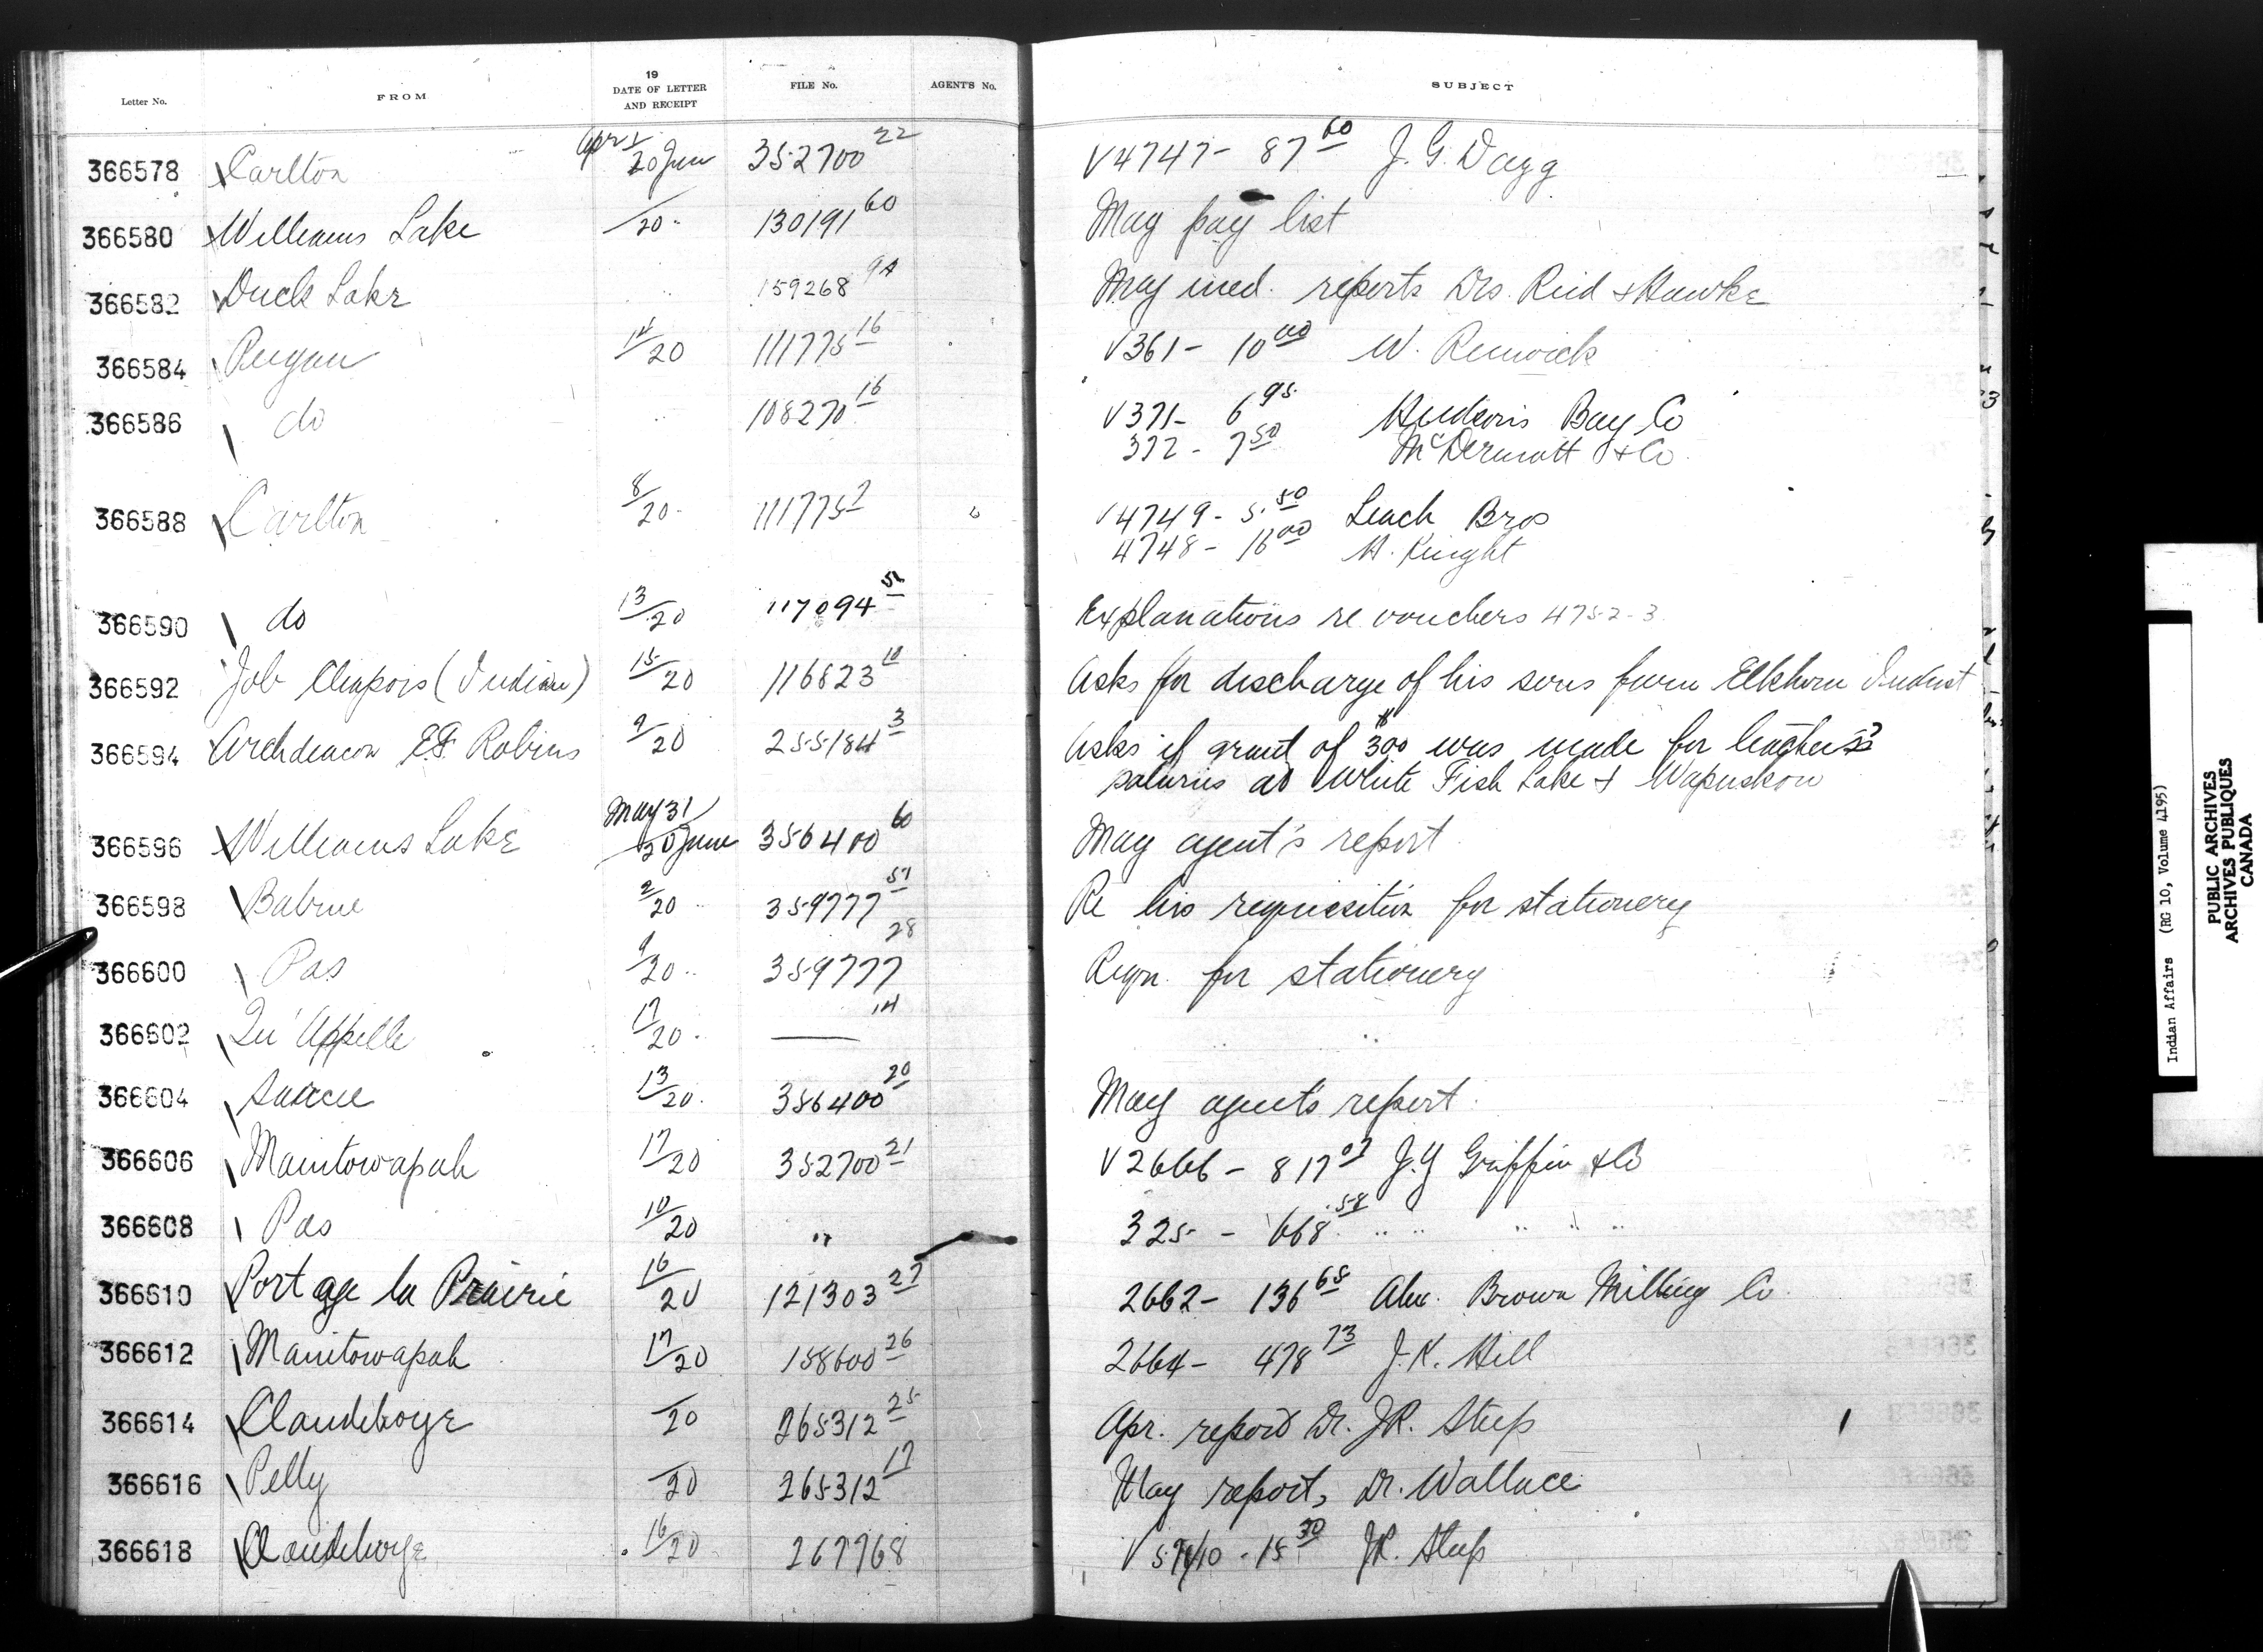 Letter No. FROM 19 DATE OF LETTER AND RECEIPT FILE No. AGENT'S No. SUBJECT
366578 Carlton Apr 1/20 Jun 352700 22 V4747 - 87 60 J. G. Dagg
366580 Williams Lake /20 " 130191 60 May pay list
366582 Duck Lake " " 159268 9A May med. reports Drs. Reid & Hawke
366584 14/20 111775 16 V361 - 10 00 W. Renwick
366586 do " 108270 16 V371 - 6 95 Hudson's Bay Co
372 - 7 50 McDermott & Co.
366588 Carlton 8/20 111775 2 V4749 - 5.50 Leach Bros
4748 - 16 00 A. Knight
366590 do 13/20 117094 51 Explanations re vouchers 4752-3
366592 Job (Indian) 15/20 116823 10 Asks for discharge of his sons from Elkhorn Indust
366594 Archdeacon E.F. Robins 9/20 255184 3 Asks if grant of $300 was made for teachers
salaries at White Fish Lake & Wapuskow
366596 Williams Lake May 31/20 June 356400 60 May agent's report
366598 Babine 2/20 " 359777 57 Re his requisition for stationery
366600 Pas 9/20 " 359777 28 Reqn. for stationery
366602 Qu'Appelle 17/20 " — 14 " "
366604 Sarcee 13/20 356400 20 May agents report.
366606 Manitowapah 17/20 352700 21 V2666 - 817 07 J.Y Griffin & Co
366608 Pas 10/20 " 325 - 668 58 " " " " "
366610 Portage la Prairie 16/20 121303 27 2662 - 136 68 Alex. Brown Milling Co.
366612 Manitowapah 17/20 158600 26 2664 - 478 73 J. K. Hill
366614 Clandeboye /20 265312 25 Apr. report Dr. J.R. Steep
366616 Pelly /20 265312 17 May report, Dr. Wallace
366618 Clandeboye 16/20 267768 15 30 J.R. Steep
Indian Affairs (RG 10, Volume 4195)
PUBLIC ARCHIVES
ARCHIVES PUBLIQUES
CANADA